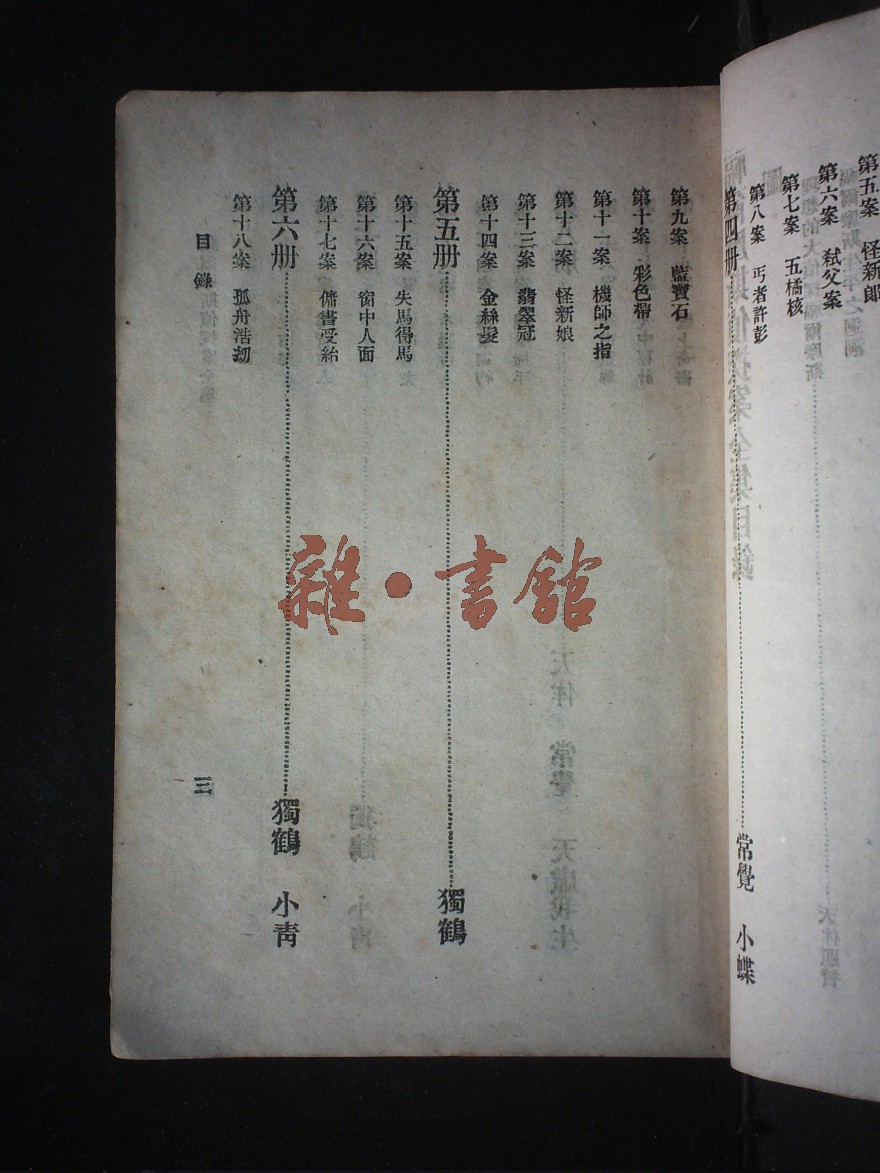 第五案 怪新郎
第六案 弑父案
第七案 五橘核
第八案 丐者許彭
第四册 常覺 小蝶
第九案 藍寶石
第十案 彩色帶
第十一案 機師之指
第十二案 怪新娘
第十三案 翡翠冠
第十四案 金絲髮
第五册 獨鶴
第十五案 失馬得馬
第十六案 窗中人面
第十七案 傭書受紿
第六册 獨鶴 小青
第十八案 孤舟浩劫
目錄 三
雜·書館